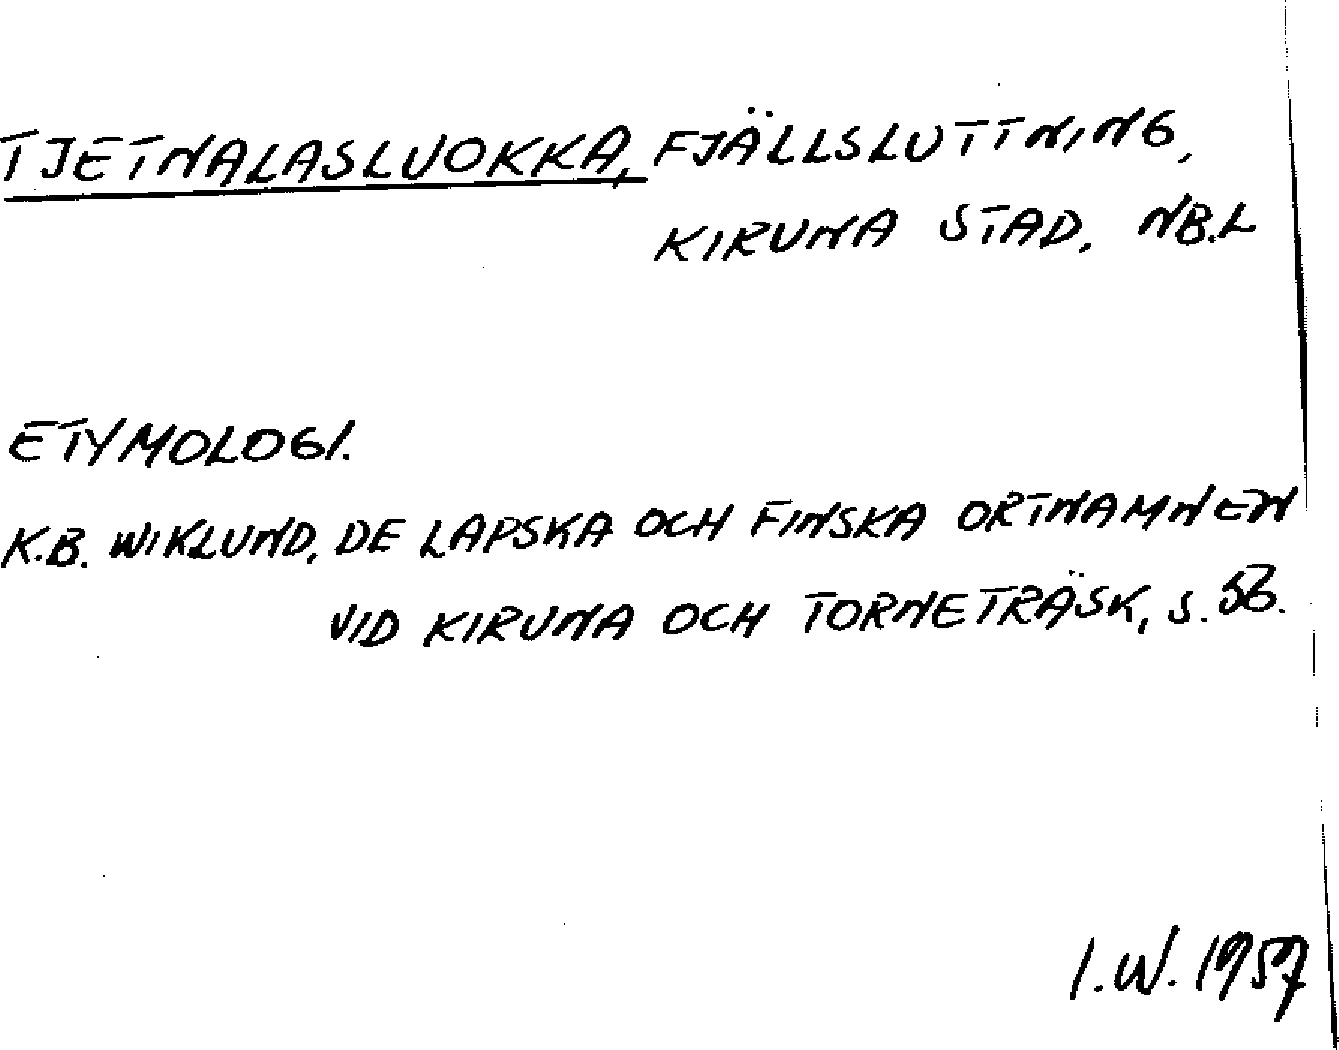 TJETNALASLUOKKA, FJÄLLSLUTTNING,
KIRUNA STAD, NB.L
ETYMOLOGI.
K.B. WIKLUND, DE LAPSKA OCH FINSKA ORTNAMNEN
VID KIRUNA OCH TORNETRÄSK, S.
I.W. 1957